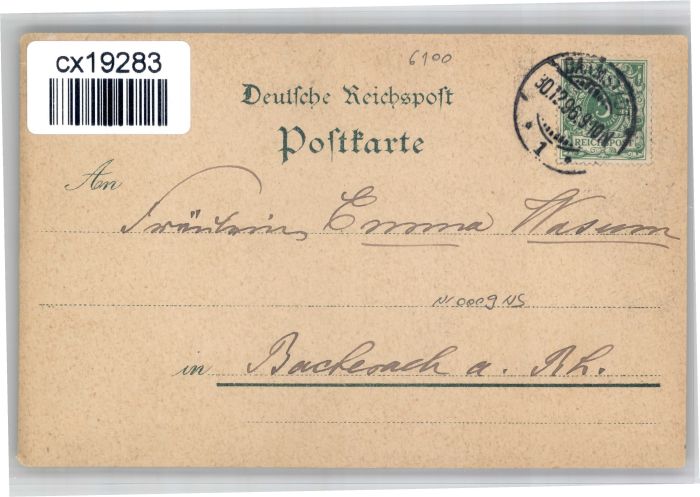 cx19283
6100
Deutsche Reichspost
Postkarte
DARMSTADT
30.12.96.9-10N.
* 1 *
5
REICHSPOST
An
Fräulein Emma Wasum
N 0009 NS
in Bacharach a. Rh.